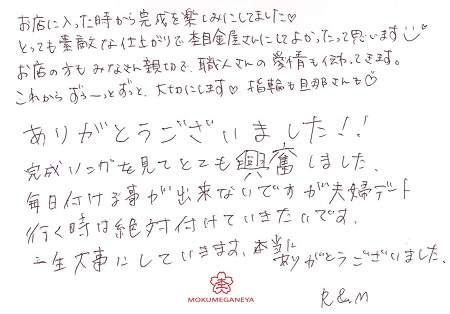 お店に入った時から完成を楽しみにしてました♡
とっても素敵な仕上がりで杢目金屋さんにしてよかったって思います
お店の方もみなさん親切で、職人さんの愛情も伝わってきます。
これからずぅーっとずっと、大切にします♡ 指輪も旦那さんも♡
ありがとうございました!!
完成リングを見てとても興奮しました。
毎日付ける事が出来ないですが夫婦デート
行く時は絶対付けていきたいです。
一生大事にしていきます。本当に
ありがとうございました。
MOKUMEGANEYA
R&M